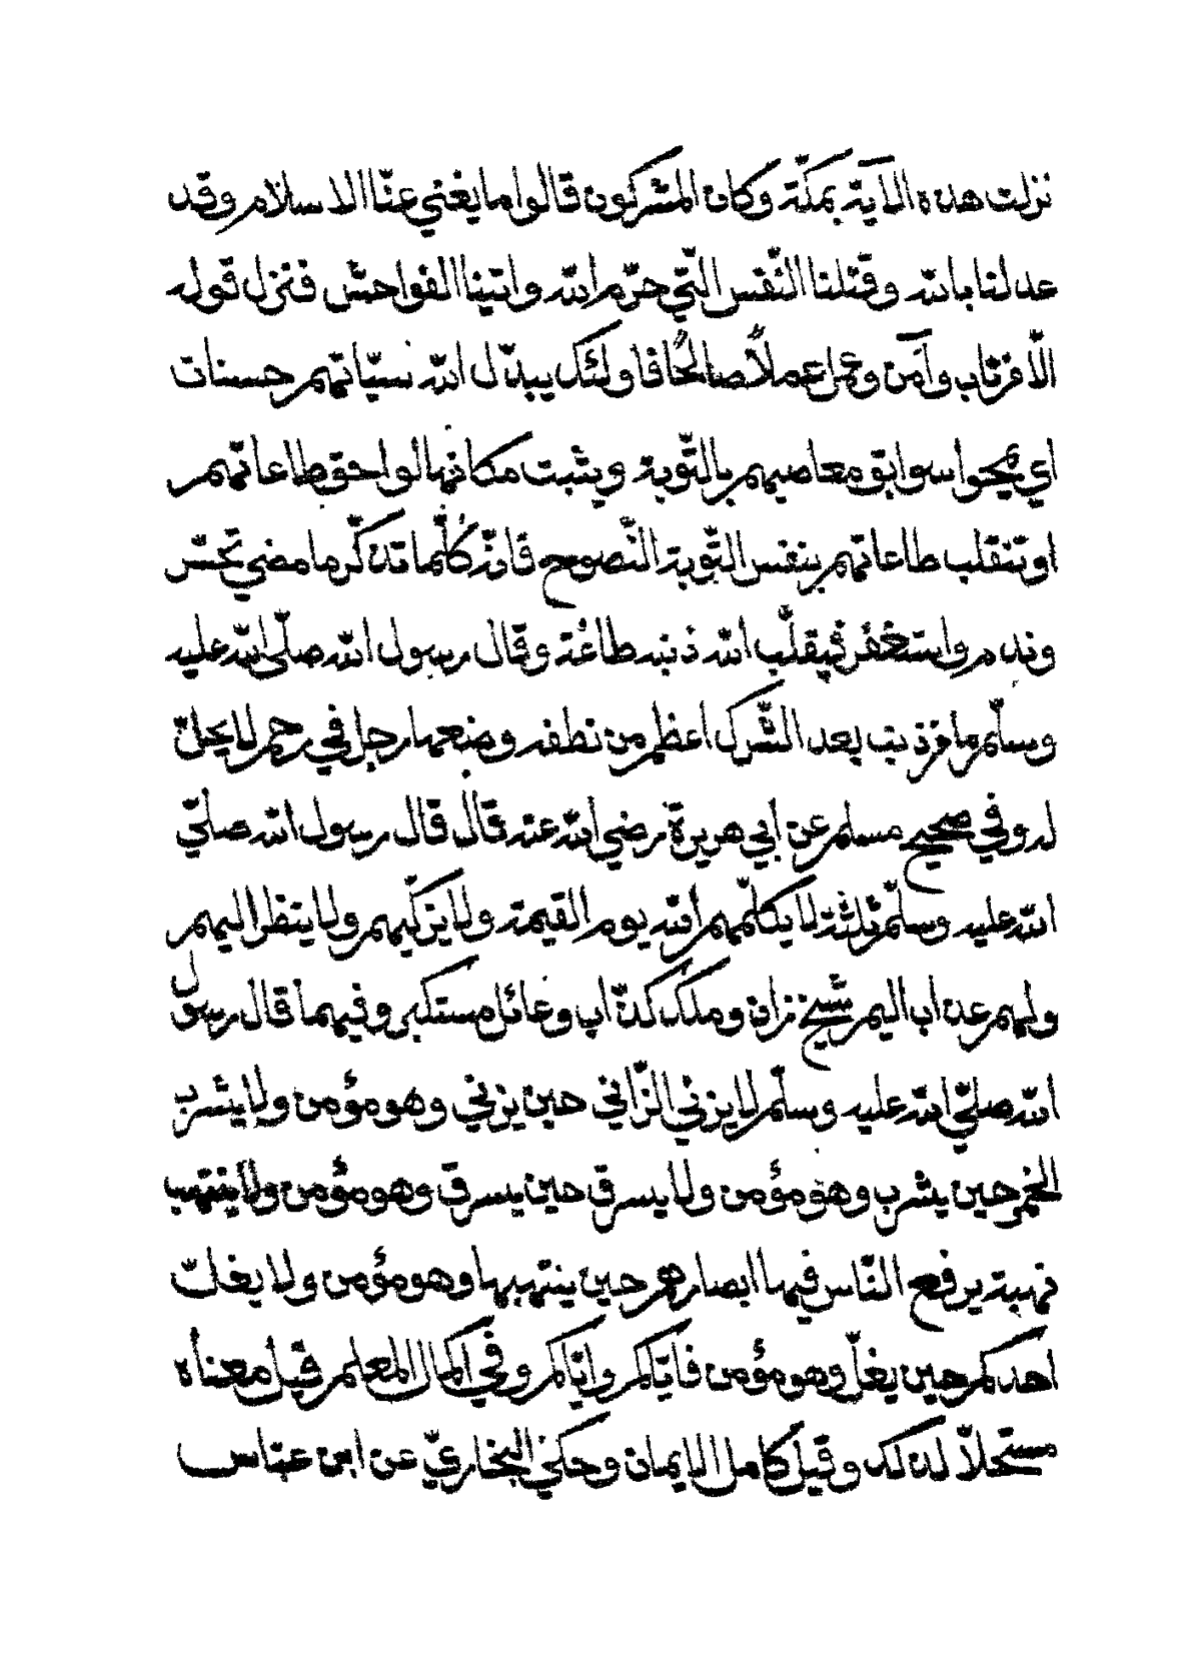 نزلت هذه الآية بمكّة وكان المشركون قالوا ما يغني عنّا الاسلام وقد
عدلنا بالله وقتلنا النّفس الّتي حرّم الله واتينا الفواحش فنزل قوله
الّا من تاب وآمن وعمل عملًا صالحًا فاولئك يبدّل الله سيّاتهم حسنات
اي يمحوا سوابق معاصيهم بالتّوبة ويثبت مكانها لواحق طاعاتهم
او تنقلب طاعاتهم بنفس التّوبة النّصوح فانّه كُلّما تذكّر ما مضي تحسّر
وندم واستغفر فيقلّب الله ذنبه طاعة وقال رسول الله صلّي الله عليه
وسلّم ما من ذنب بعد الشّرك اعظم من نطفة وضعها رجل في رحم لا يحلّ
له وفي صحيح مسلم عن أبي هريرة رضي الله عنه قال قال رسول الله صلّي
الله عليه وسلّم ثلثة لا يكلّمهم الله يوم القيمة ولا يزكّيهم ولا ينظر اليهم
ولهم عذاب اليم شيخ زان وملك كذّاب وعائل مستكبر وفيهما قال رسول
الله صلّي الله عليه وسلّم لا يزني الزّاني حين يزني وهو مؤمن ولا يشرب
الخمر حين يشرب وهو مؤمن ولا يسرق حين يسرق وهو مؤمن ولا ينتهب
نهبة يرفع النّاس فيها ابصارهم حين ينتهبها وهو مؤمن ولا يغلّ
احدكم حين يغلّ وهو مؤمن فايّاكم وايّاكم وفي اكمال المعلم قيل معناه
مستحلّا لذلك وقيل كامل الايمان وحكي البخاريّ عن ابن عبّاس